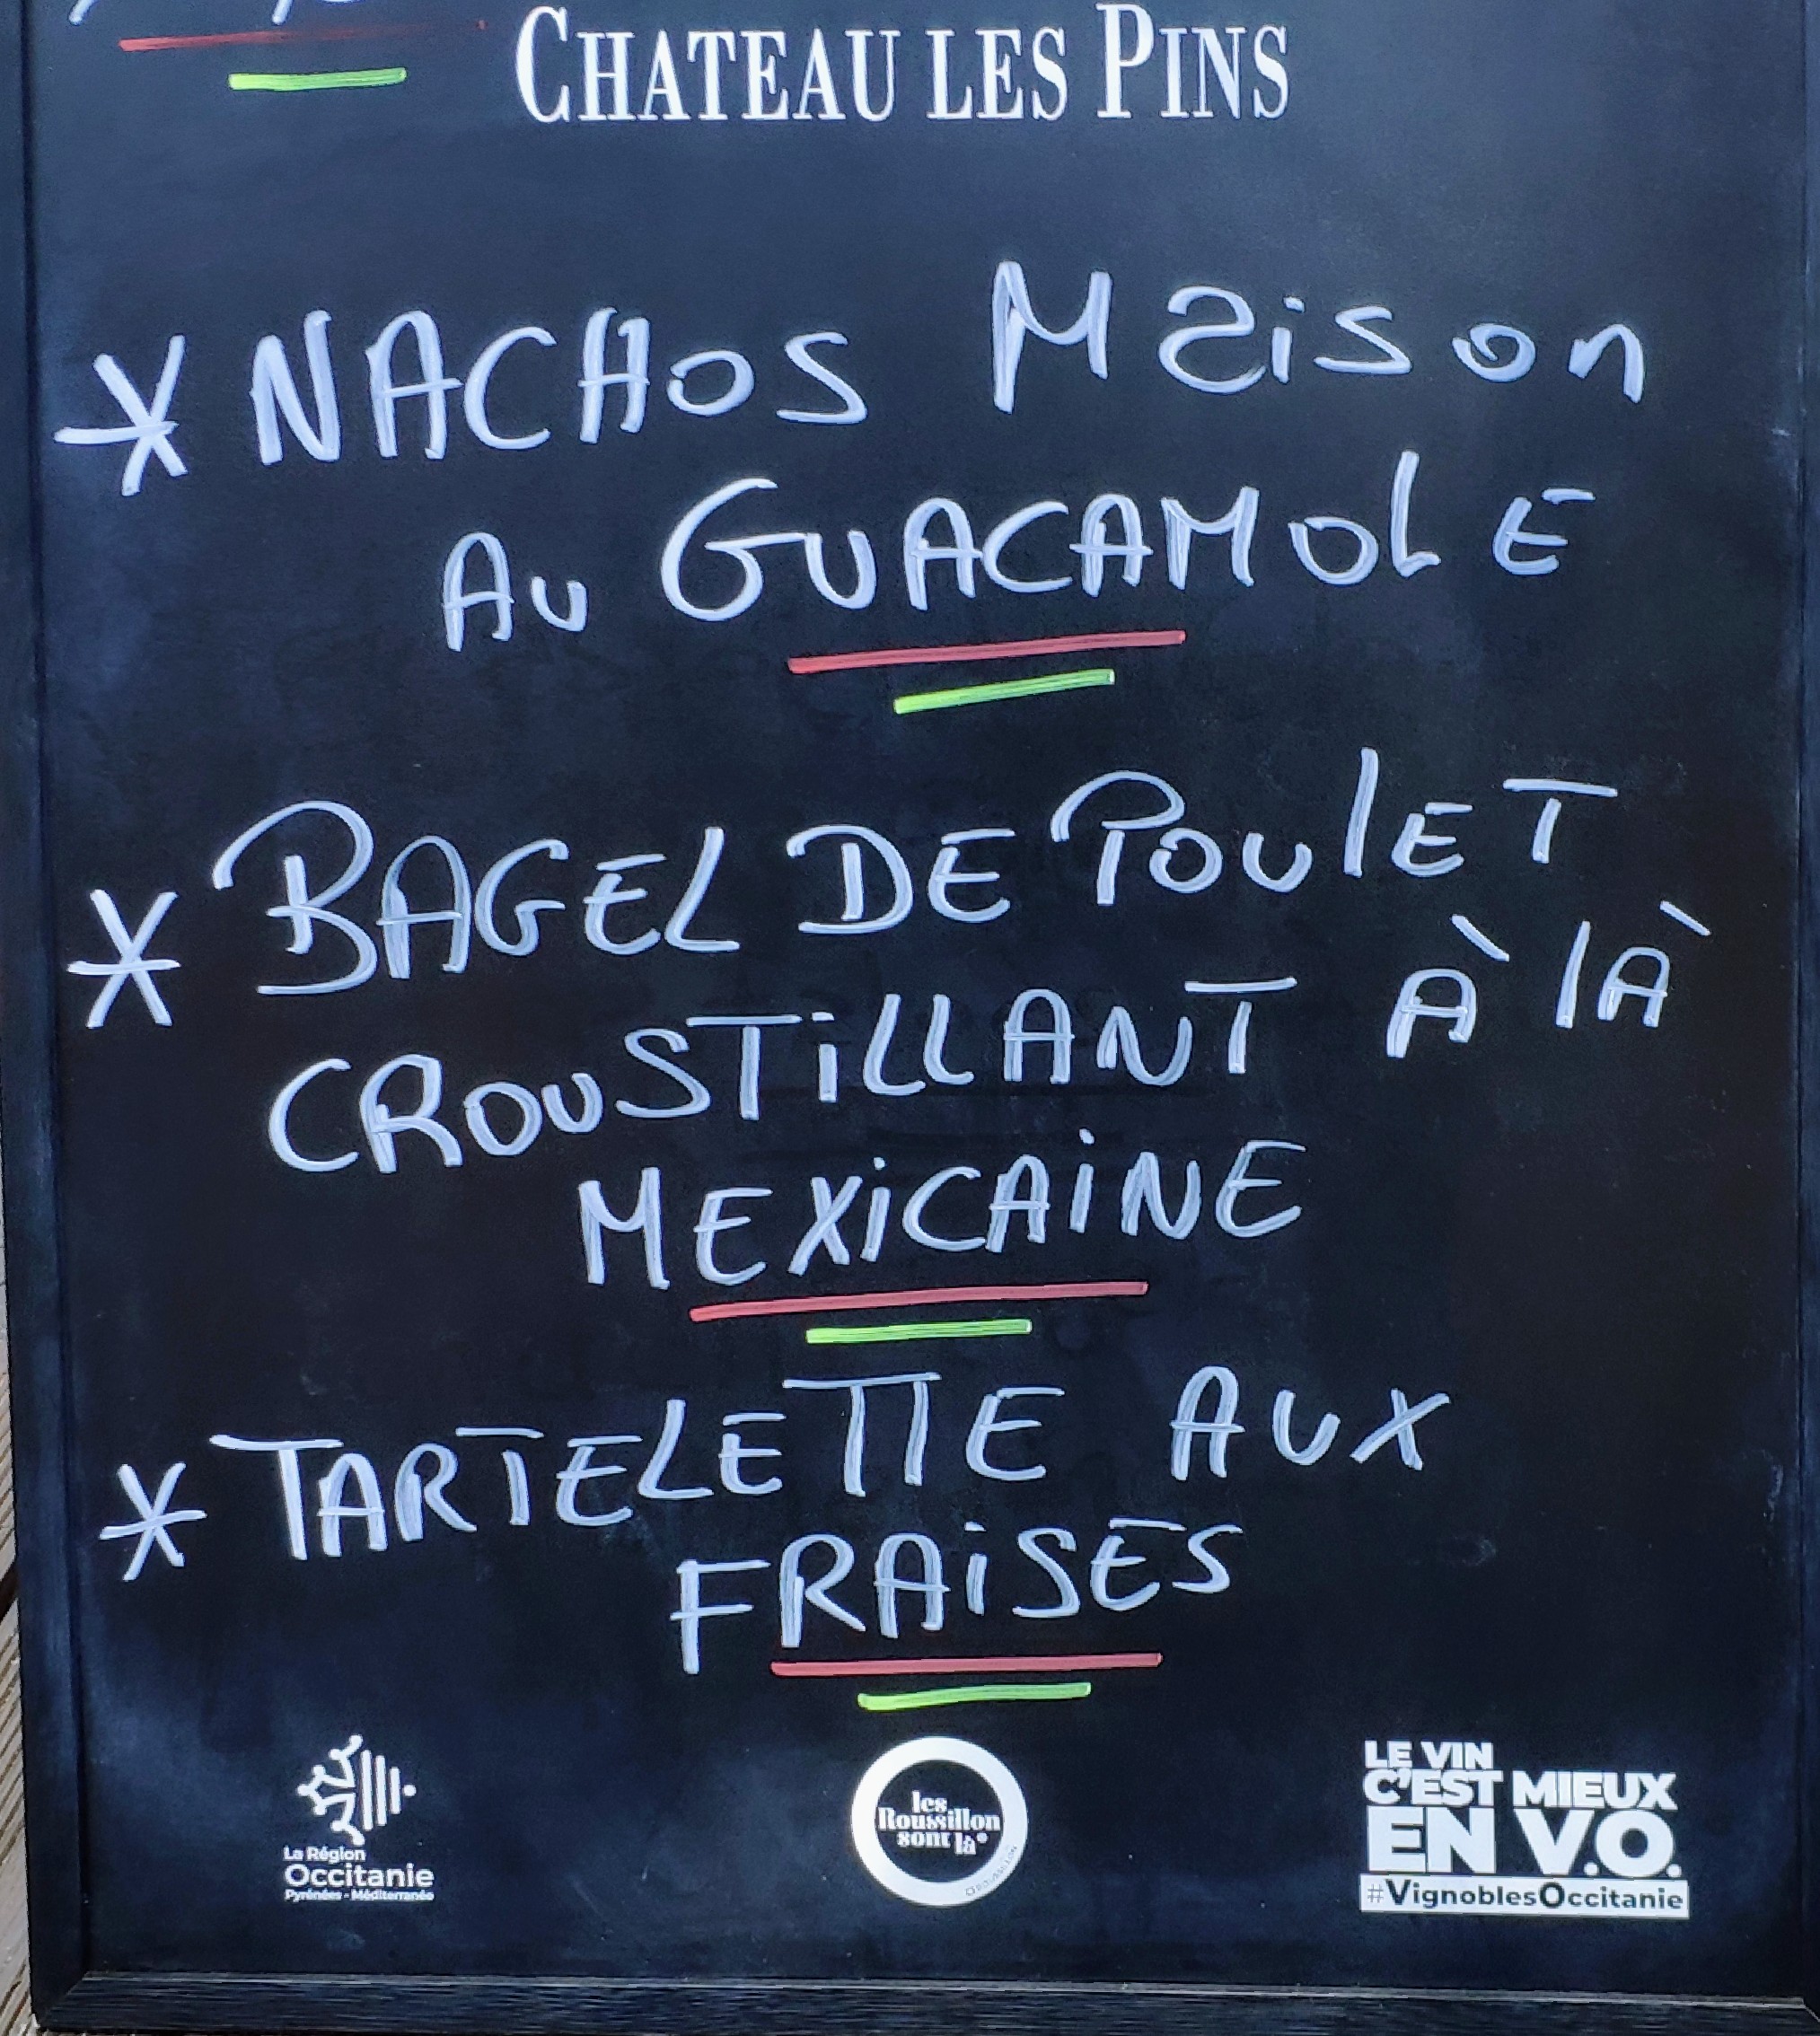 CHATEAU LES PINS
* NACHOS Maison
AU GUACAMOLE
* BAGEL DE POULET
CROUSTILLANT À LÀ
MEXICAINE
* TARTELETTE AUX
FRAISES
La Région
Occitanie
Pyrénées - Méditerranée
les
Roussillon
sont là
LE VIN
C'EST MIEUX
EN V.O.
#VignoblesOccitanie